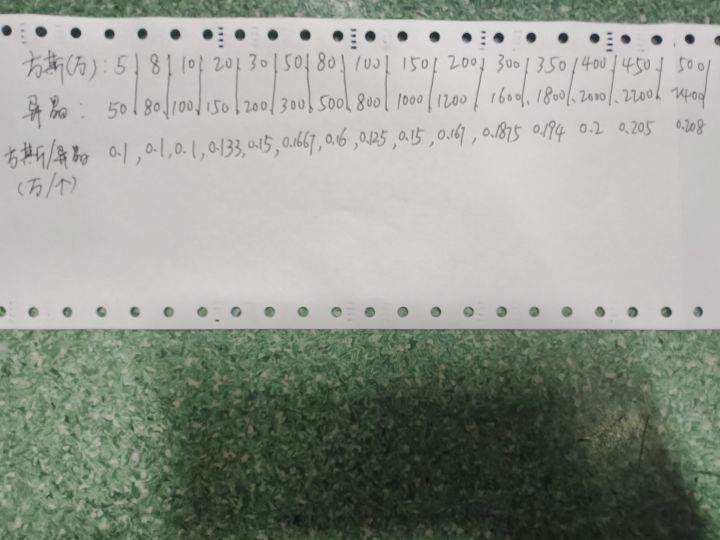 方斯(万): 5 | 8 | 10 | 20 | 30 | 50 | 80 | 100 | 150 | 200 | 300 | 350 | 400 | 450 | 500 |
异晶: 50 | 80 | 100 | 150 | 200 | 300 | 500 | 800 | 1000 | 1200 | 1600 | 1800 | 2000 | 2200 | 2400 |
方斯/异晶 0.1, 0.1, 0.1, 0.133, 0.15, 0.1667, 0.16, 0.125, 0.15, 0.167, 0.1875 0.194 0.2 0.205 0.208
(万/个)